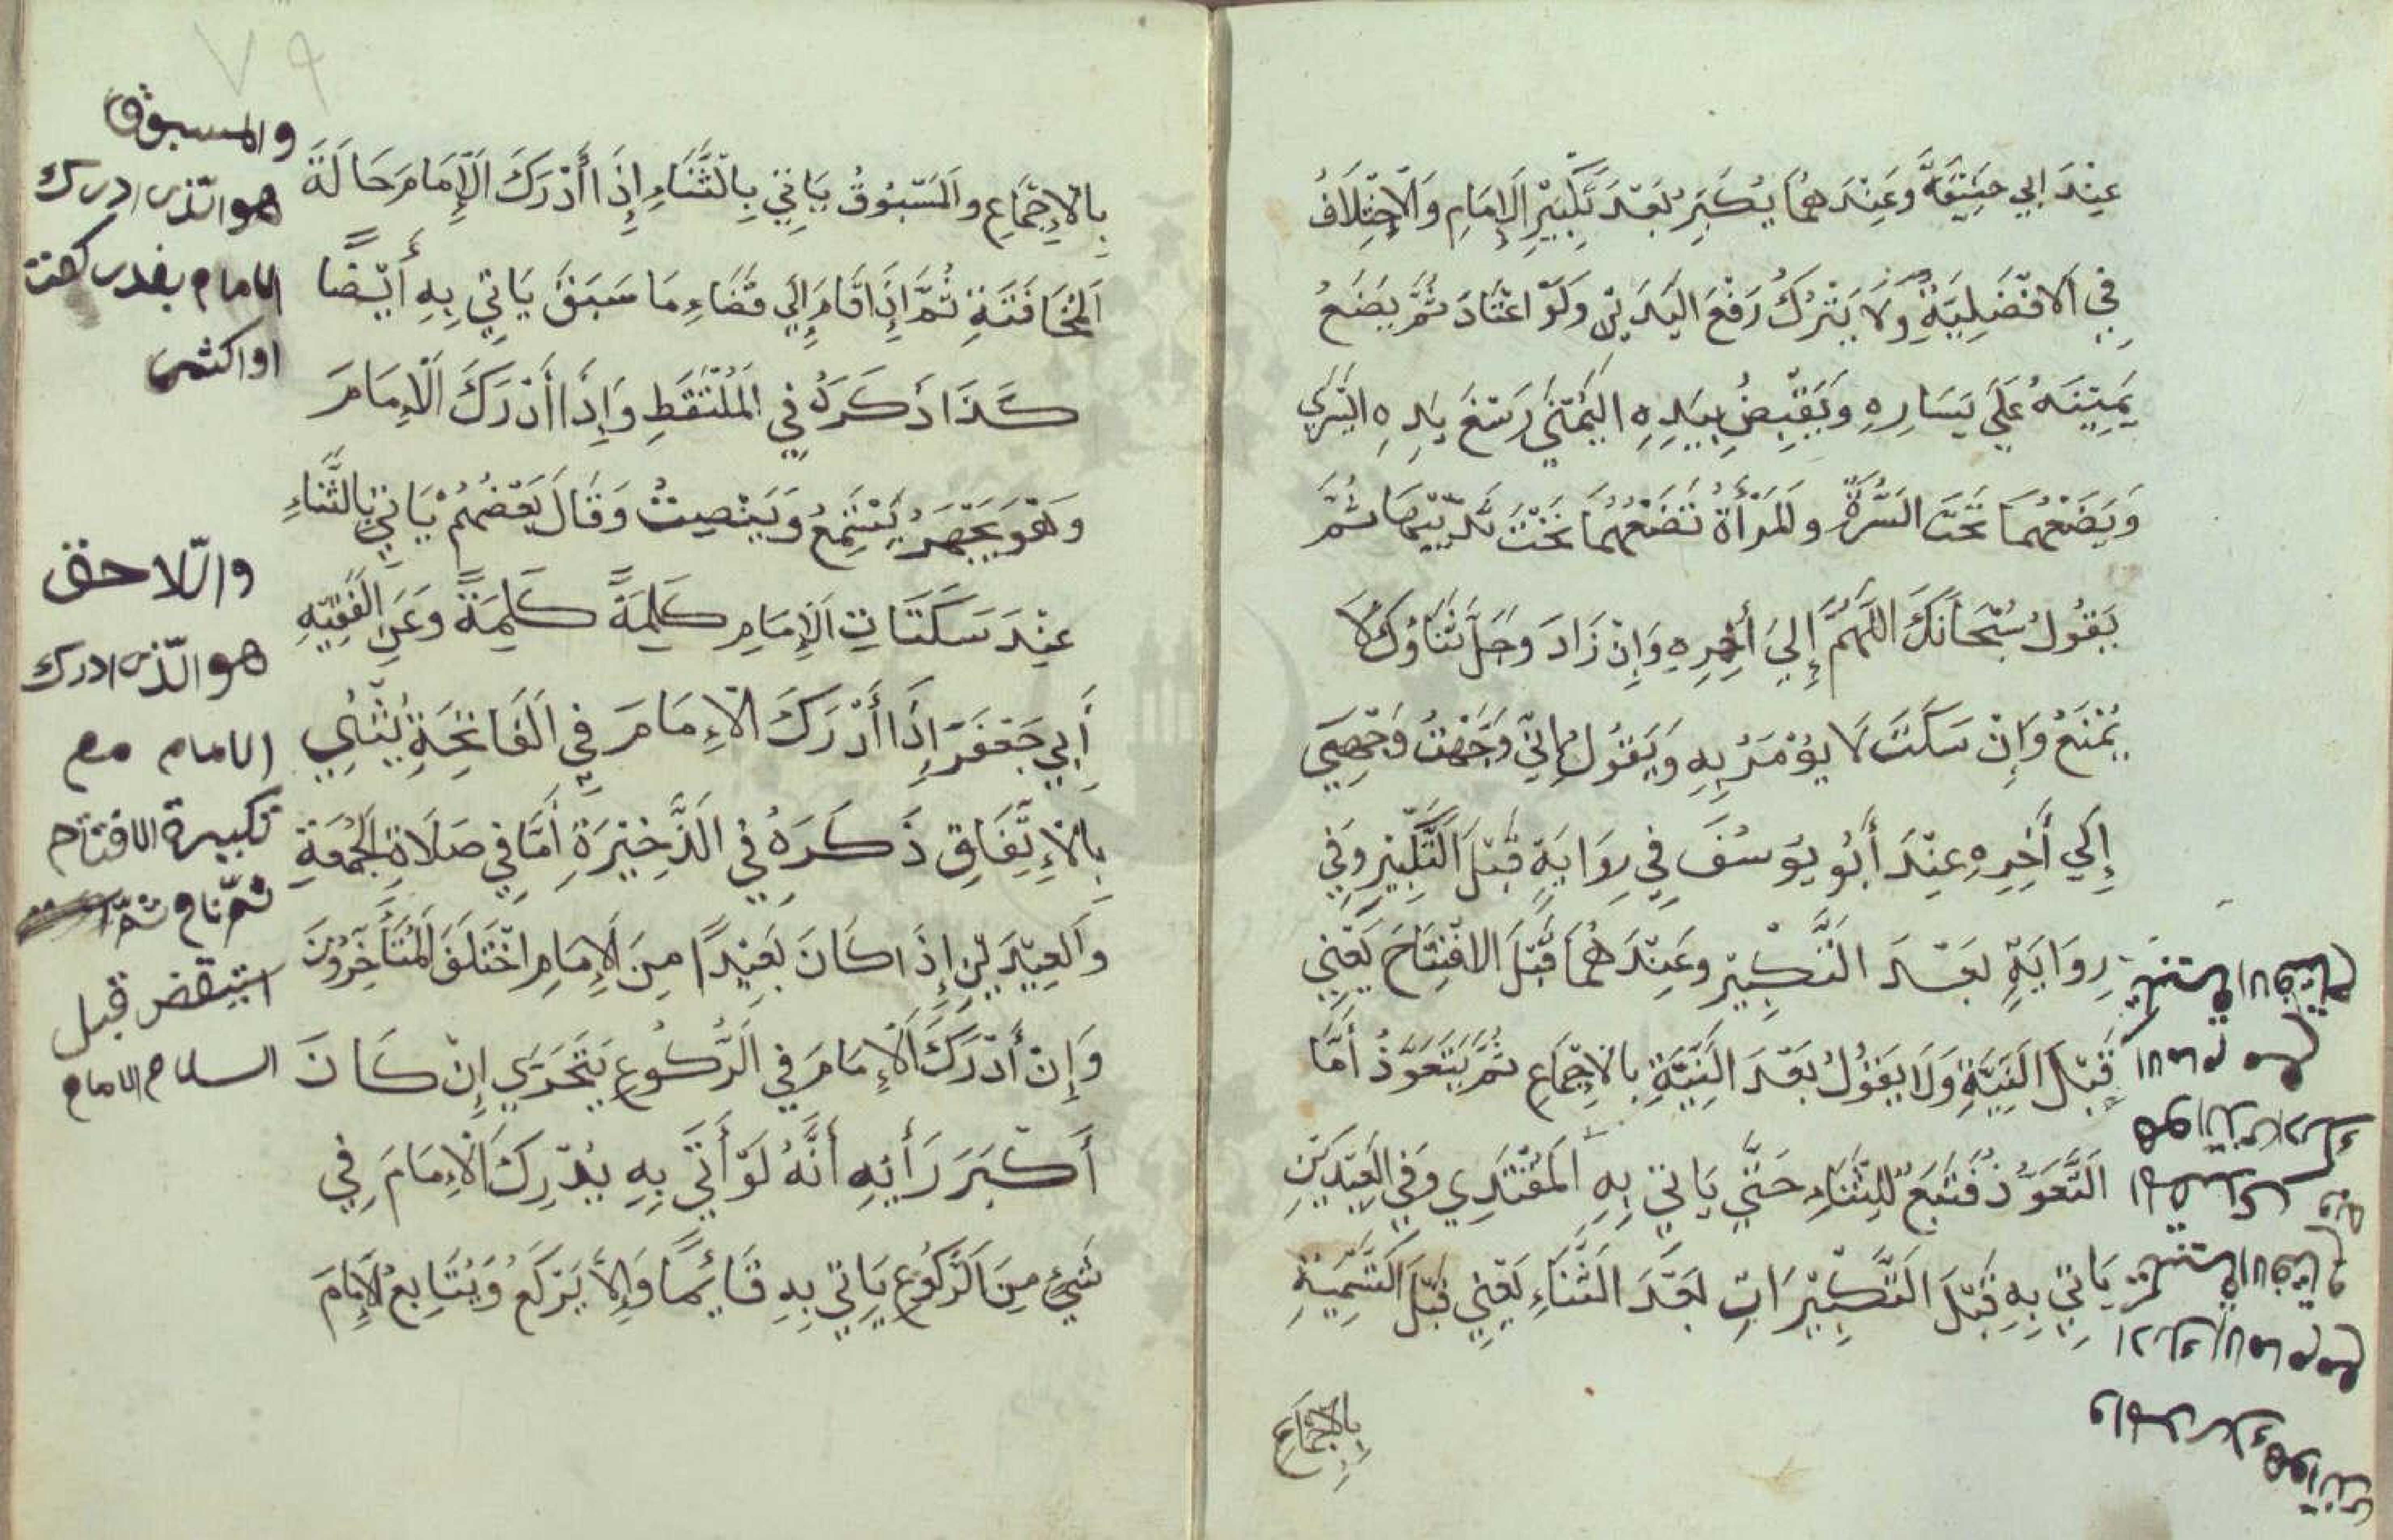 عِنْدَ ابِي حَنِيْفَةَ وَعِنْدَ هُمَا يُكَبِّرُ بَعْدَ تَكْبِيْرِ الْاِمَامِ وَالْاِخْتِلَافُ
فِي الْاَفْضَلِيَّةِ وَلَا يَتْرُكُ رَفْعَ الْيَدَيْنِ وَلَوْ اعْتَادَ ثُمَّ يَضَعُ
يَمِيْنَهُ عَلَى يَسَارِهِ وَيَقْبِضُ بِيَدِهِ الْيُمْنَى رَسْغَ يَدِهِ الْيُسْرَي
وَيَضَعُهُمَا تَحْتَ السُّرَّةِ وَالْمَرْأَةُ تَضَعُهُمَا تَحْتَ ثَدْيَيْهَا ثُمَّ
يَقُولُ سُبْحَانَكَ اللَّهُمَّ إِلَى أٰخِرِهِ وَإِنْ زَادَ وَجَلَّ ثَنَاؤُكَ لَا
يُمْنَعُ وَإِنْ سَكَتَ لَا يُؤْمَرُ بِهِ وَيَقُولُ إِنِّي وَجَّهْتُ وَجْهِيَ
إِلَي أَخِرِهِ عِنْدَ أَبُو يُوسُفَ فِي رِوَايَةٍ قَبْلَ التَّكْبِيْرِ وَفِي
رِوَايَةٍ بَعْدَ التَّكْبِيْرِ وَعِنْدَ هُمَا قَبْلَ الِافْتِتَاحَ يَعْنِي
قَبْلَ النِّيَّةِ وَلَا يَقُوْلُ بَعْدَ النِّيَّةِ بِالْاِجْمَاعِ ثُمَّ يَتَعَوَّذُ أَمَّا
التَّعَوُّذُ فَتَبَعٌ لِلثَّنَاءِ حَتَّى يَاتِيْ بِهِ الْمُقْتَدِي وَفِي الْعِيْدَيْنِ
يَاتِيْ بِهِ قَبْلَ التَّكْبِيْرَاتِ بَعْدَ الثَّنَاءِ يَعْنِي قَبْلَ التَّسْمِيَةِ
بِالْاِجْمَاعِ
والمدرك هو الذي
ادرك الامام مع
الامام مع
بِالْاِجْمَاعِ وَالْمَسْبُوْقُ يَاتِيْ بِالثَّنَاءِ إِذَا أَدْرَكَ الْاِمَامَ حَالَةَ
الْمُخَافَتَةِ ثُمَّ إِذَا قَامَ إِلَي قَضَاءِ مَا سَبَقَ يَاتِيْ بِهِ أَيْضًا
كَذَا ذَكَرَهُ فِي الْمُلْتَقَطِ وَإِذَا أَدْرَكَ الْاِمَامَ
وَهُوَ يَجْهَرُ يَسْتَمِعُ وَيَنْصِتُ وَقَالَ بَعْضُهُمْ يَاتِيْ بِالثَّنَاءِ
عِنْدَ سَكَتَاتِ الْاِمَامِ كَلِمَةً كَلِمَةً وَعَنِ الْفَقِيْهِ
أَبِي جَعْفَرَ إِذَا أَدْرَكَ الْاِمَامَ فِي الْفَاتِحَةِ يُثْنِي
بِالْاِتِّفَاقِ ذَكَرَهُ فِي الذَّخِيْرَةِ أَمَّا فِي صَلَاةِ الْجُمُعَةِ
وَالْعِيْدَيْنِ إِذَا كَانَ بَعِيْدًا مِنَ الْاِمَامِ اخْتَلَفَ الْمُتَأَخِّرُوْنَ
وَإِنْ أَدْرَكَ الْاِمَامَ فِي الرُّكُوعِ يَتَحَرَّي إِنْ كَانَ
أَكْبَرَ رَأْيِهِ أَنَّهُ لَوْ أَتَى بِهِ يُدْرِكُ الْاِمَامَ فِي
شَيْءٍ مِنَ الرُّكُوْعِ يَاتِيْ بِهِ قَائِمًا وَإِلَّا يَرْكَعُ وَيُتَابِعُ الْاِمَامَ
٧٩
والمسبوق
هو الّذى ادرك
الامام بقدر ركعت
او اكثر
والّلاحق
هو الّذى ادرك
الامام مع
تكبيرة الافتتاح
ثمّ نام ثمّ
استيقض قبل
السلام الامام